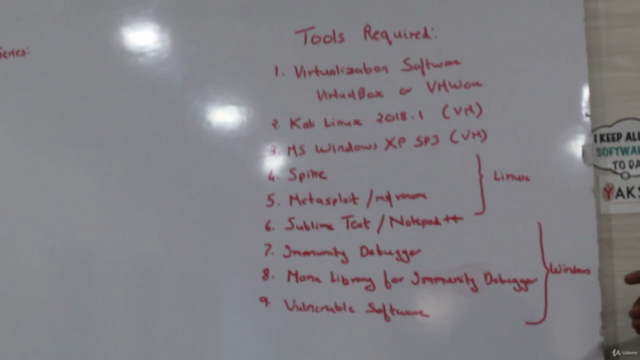 Series:
Tools Required:
1. Virtualization Software
VirtualBox or VMWare
2. Kali Linux 2018.1 (VM)
3. MS Windows XP SP3 (VM)
4. Spike
5. Metasploit / msfvenom
Linux
6. Sublime Text / Notepad++
7. Immunity Debugger
8. Mona Library for Immunity Debugger
9. Vulnerable Software
Windows
I KEEP ALL
SOFTWAR
TO DA
YAKS
Udemy